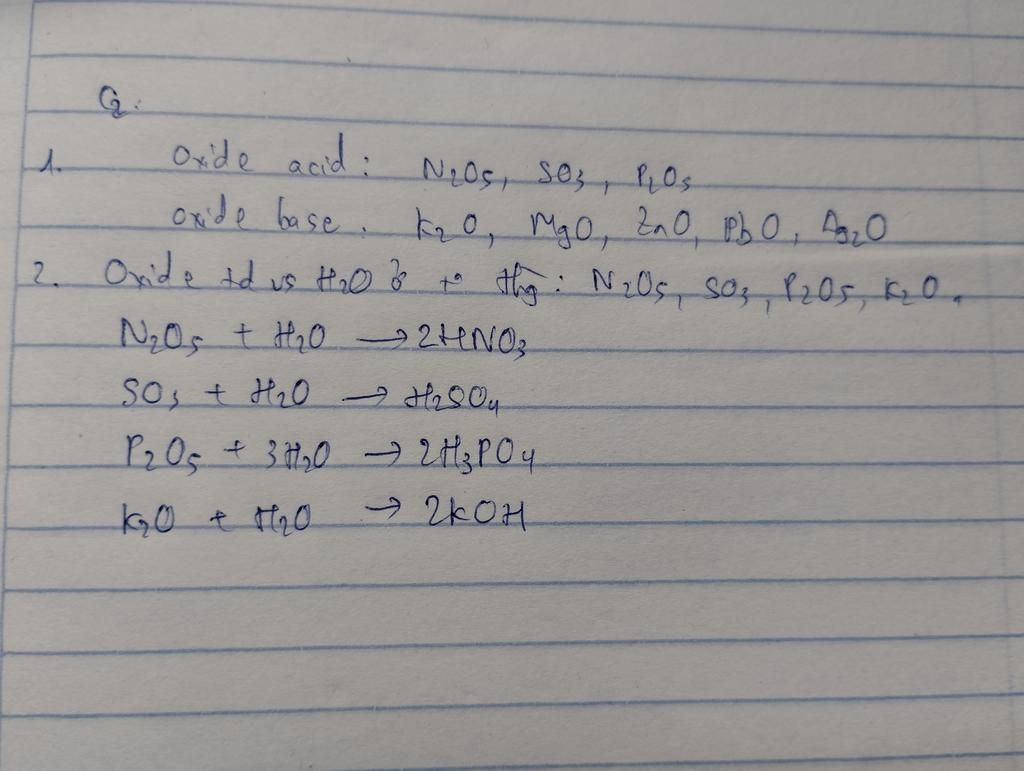 G.
1. Oxide acid: N2O5, SO3, P2O5
oxide base. K2O, MgO, ZnO, PbO, Ag2O
2. Oxide td vs H2O ở to thg: N2O5, SO3, P2O5, K2O.
N2O5 + H2O → 2HNO3
SO3 + H2O → H2SO4
P2O5 + 3H2O → 2H3PO4
K2O + H2O → 2KOH